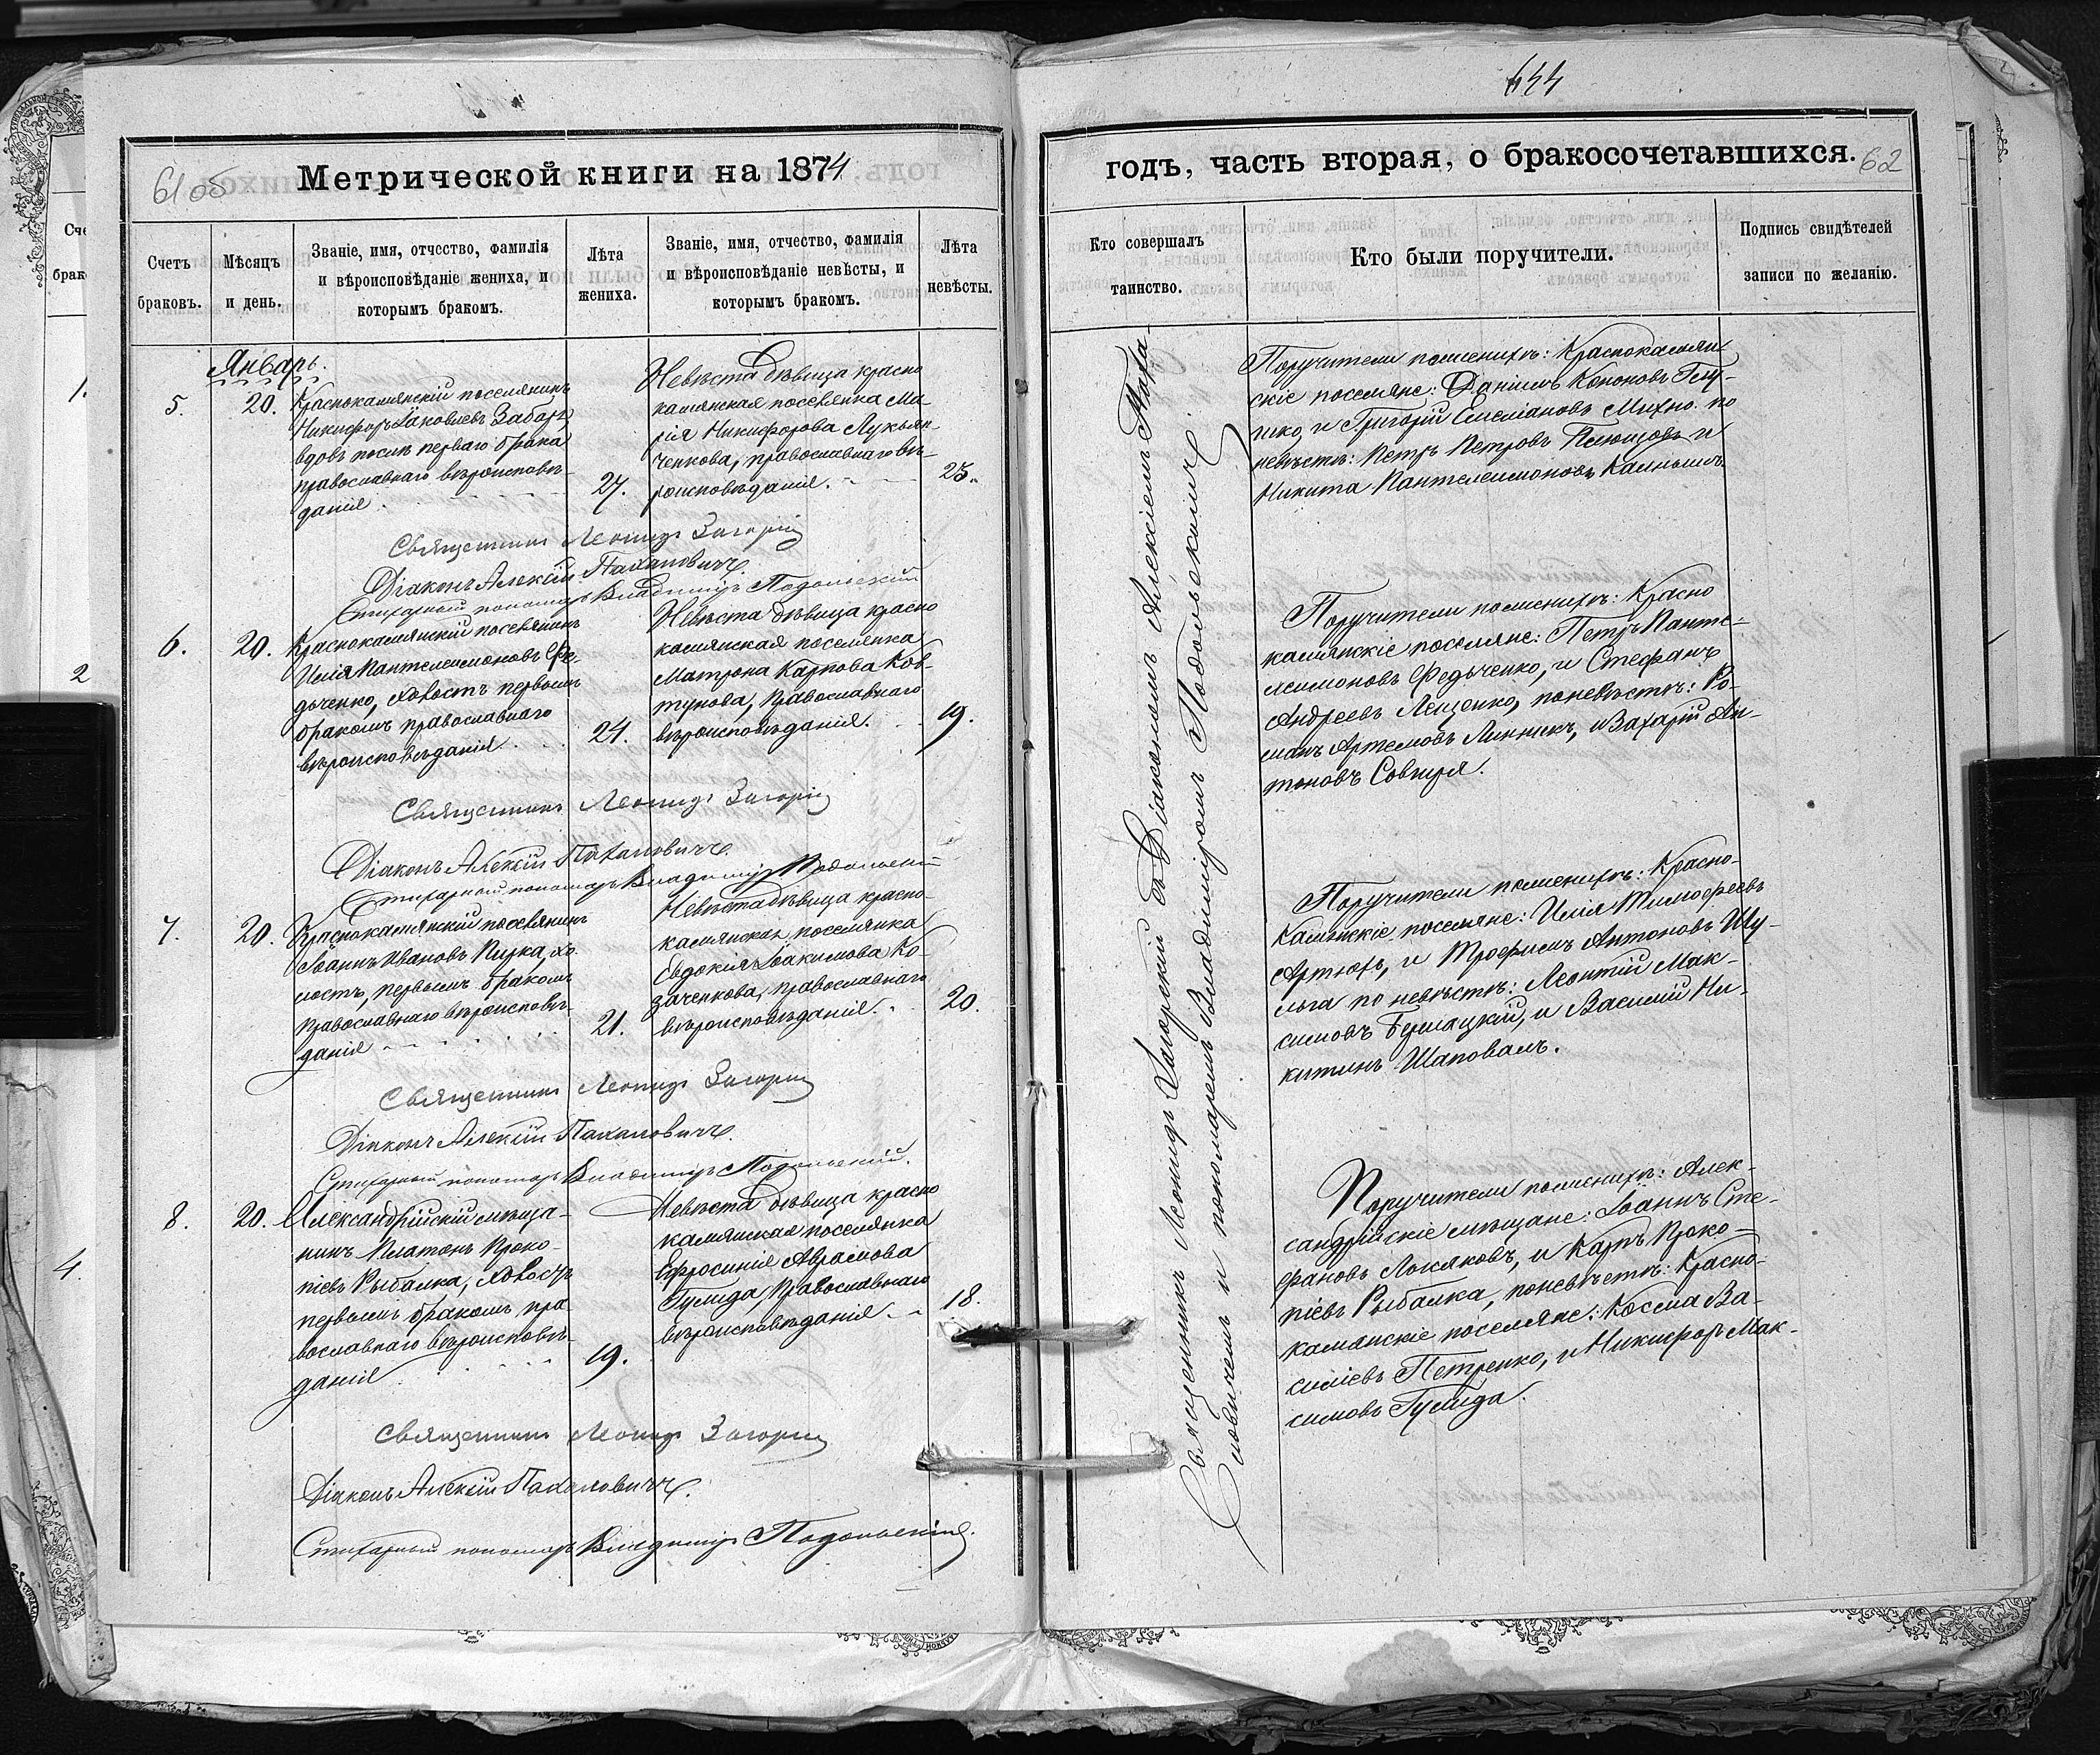 644
61 об
Метрической книги на 1874
годъ, часть вторая, о бракосочетавшихся.
62
Счетъ браковъ.
Мѣсяцъ и день.
Званіе, имя, отчество, фамилія
и вѣроисповѣданіе жениха, и
которымъ бракомъ.
Лѣта
жениха.
Званіе, имя, отчество, фамилія
и вѣроисповѣданіе невѣсты, и
которымъ бракомъ.
Лѣта
невѣсты.
Кто совершалъ
таинство.
Кто были поручители.
Подпись свидѣтелей
записи по желанію.
Январь.
5.
20.
Краснокамянскій поселянинъ
Никифоръ Іаковлевъ
вдовъ послѣ перваго брака
православнаго вѣроисповѣ-
данія.
27.
Невѣста дѣвица красно
камянская поселянка Ма-
рія Никифорова Лукьян-
ченкова, православнаго вѣ-
роисповѣданія.
25.
Священникъ Леонидъ Загорскій
Діаконъ Алексій Пахаловичъ.
Стихарный пономарь Владиміръ Подольскій
6.
20.
Краснокамянскій поселянинъ
Илія Пантелеимоновъ Фе-
дьченко, холостъ первымъ
бракомъ православнаго
вѣроисповѣданія.
24.
Невѣста дѣвица красно
камянская поселянка
Матрона Карпова Ков-
тунова, православнаго
вѣроисповѣданія.
19.
Священникъ Леонидъ Загорскій
Діаконъ Алексій Пахаловичъ.
Стихарный пономарь Владиміръ Подольскій
7.
20.
Краснокамянскій поселянинъ
Іоаннъ Ивановъ Пугка, хо-
лостъ, первымъ бракомъ
православнаго вѣроисповѣ-
данія
21.
Невѣста дѣвица красно-
камянская поселянка
Евдокія Іоакимова Ко-
заченкова, православнаго
вѣроисповѣданія.
20.
Священникъ Леонидъ Загорскій
Діаконъ Алексій Пахаловичъ.
Стихарный пономарь Владиміръ Подольскій.
8.
20.
Александрійскій мѣща-
нинъ Платонъ Проко-
піевъ Рыбалка, холостъ
первымъ бракомъ пра
вославнаго вѣроисповѣ-
данія
19.
Невѣста дѣвица красно
камянская поселянка
Ефросинія Аврамова
Гумида, православнаго
вѣроисповѣданія.
18.
Священникъ Леонидъ Загорскій
Діаконъ Алексій Пахаловичъ.
Стихарный пономарь Владиміръ Подольскій.
Священникъ Леонидъ Загорскій съ Діакономъ Алексіемъ Паха-
ловичемъ и пономаремъ Владиміромъ Подольскимъ.
Поручители по женихѣ: Краснокамян-
скіе поселяне: Даніилъ Кононовъ
и Григорій Емеліановъ Михно. по
невѣстѣ: Петръ Петровъ и
Никита Пантелеимоновъ Калнышъ.
Поручители по женихѣ: Красно
камянскіе поселяне: Петръ Панте-
леимоновъ Федьченко, и Стефанъ
Андреевъ Лещенко, по невѣстѣ: Ро-
манъ Артемовъ Линникъ, и Захарій Ан-
тоновъ Совкиря.
Поручители по женихѣ: Красно-
камянскіе поселяне: Илія Тимофеевъ
Артюхъ, и Трофимъ Антоновъ Шу-
льга по невѣстѣ: Леонтій Мак-
симовъ Бурлацкій, и Василій Ни-
китинъ Шаповалъ.
Поручители по женихѣ: Алек-
сандрійскіе мѣщане: Іоаннъ Сте-
фановъ и Карпъ Проко-
піевъ Рыбалка, по невѣстѣ: Красно-
камянскіе поселяне: Косма Ва-
силіевъ Петренко, и Никифоръ Мак-
симовъ Гумида.